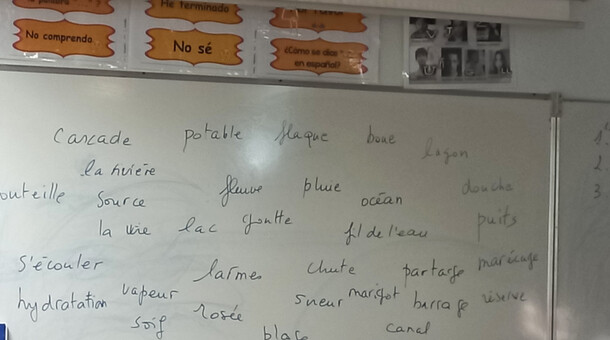 He terminado
No comprendo
No sé
¿Cómo se dice
en español?
Cascade potable flaque boue lagon
la rivière
outeille source fleuve pluie océan douche
la vie lac goutte fil de l'eau puits
s'écouler larmes chute partage marécage
hydratation vapeur rosée sueur marigot barrage réserve
soif canal
1.
2.
3.